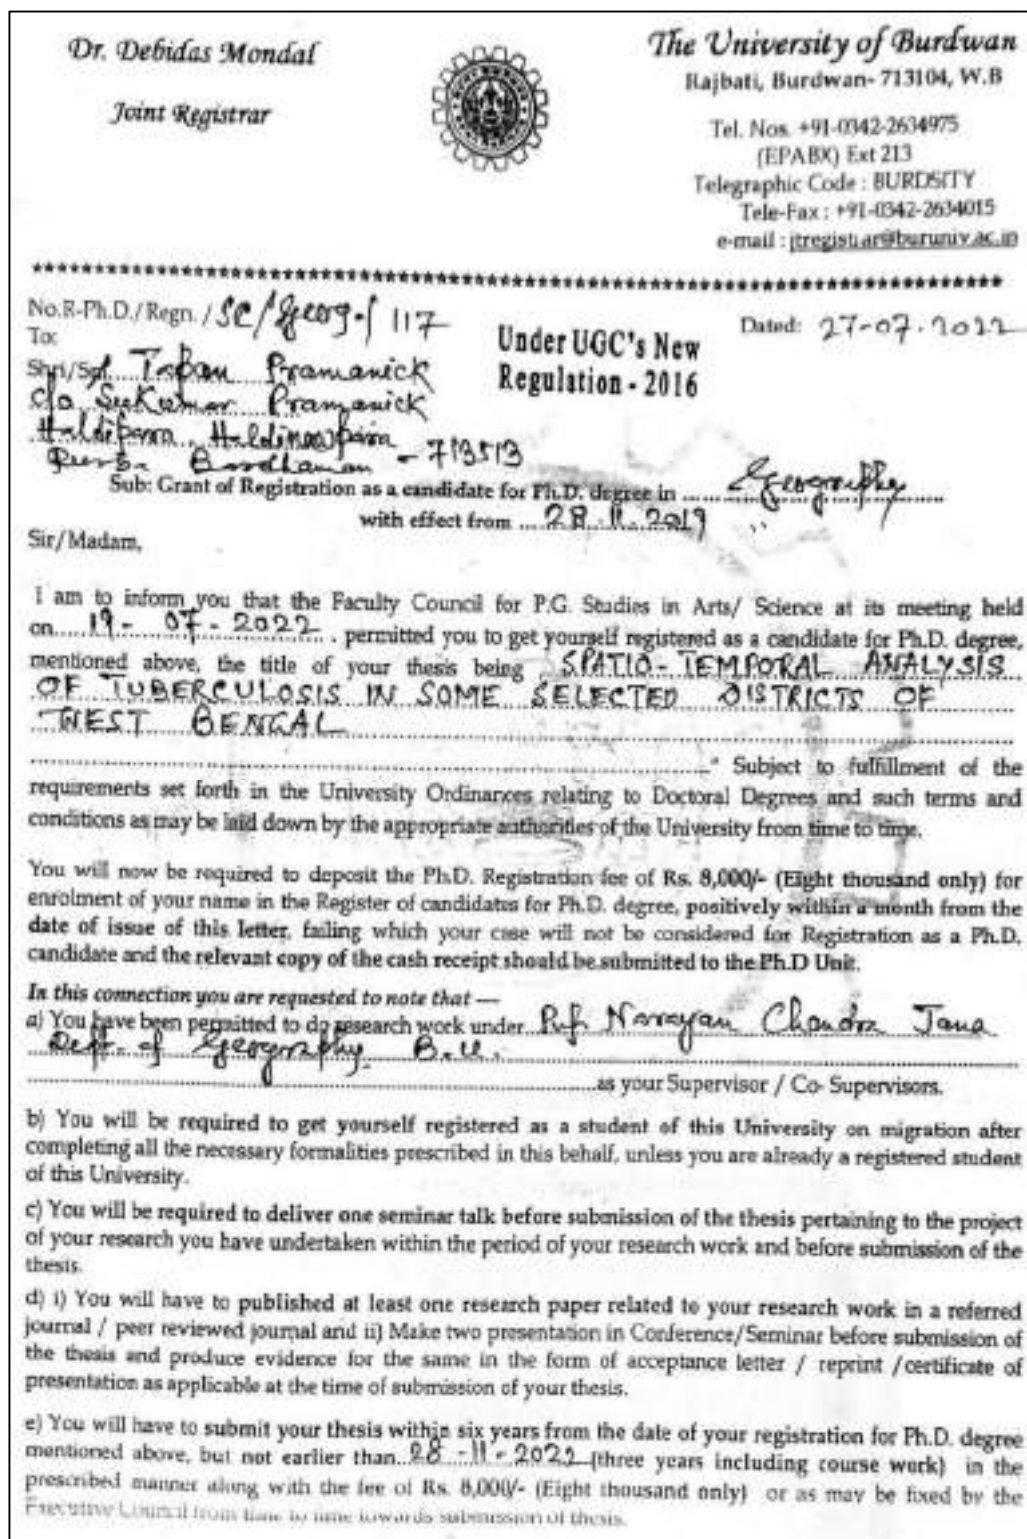 Dr. Debidas Mondal
Joint Registrar
The University of Burdwan
Rajbati, Burdwan- 713104, W.B
Tel. Nos. +91-0342-2634975
(EPABX) Ext 213
Telegraphic Code : BURDSITY
Tele-Fax : +91-0342-2634015
e-mail : jtregistrar@buruniv.ac.in
No.R-Ph.D./Regn. / SC/Geog-/ 117
Dated: 27-07-2022
To:
Under UGC's New
Regulation - 2016
Shri/Smt. Tapan Pramanick
c/o Sukumar Pramanick
Haldipara,
Purba Bardhaman - 713513
Sub: Grant of Registration as a candidate for Ph.D. degree in ...... Geography
with effect from ... 28.11.2019
Sir/Madam,
I am to inform you that the Faculty Council for P.G. Studies in Arts/ Science at its meeting held
on.... 19- 07-2022 , permitted you to get yourself registered as a candidate for Ph.D. degree,
mentioned above, the title of your thesis being SPATIO-TEMPORAL ANALYSIS
OF TUBERCULOSIS IN SOME SELECTED DISTRICTS OF
WEST BENGAL
" Subject to fulfillment of the
requirements set forth in the University Ordinances relating to Doctoral Degrees and such terms and
conditions as may be laid down by the appropriate authorities of the University from time to time.
You will now be required to deposit the Ph.D. Registration fee of Rs. 8,000/- (Eight thousand only) for
enrolment of your name in the Register of candidates for Ph.D. degree, positively within a month from the
date of issue of this letter, failing which your case will not be considered for Registration as a Ph.D.
candidate and the relevant copy of the cash receipt should be submitted to the Ph.D Unit.
In this connection you are requested to note that —
a) You have been permitted to do research work under Prof. Narayan Chandra Jana
Dept. of Geography. B.U.
as your Supervisor / Co- Supervisors.
b) You will be required to get yourself registered as a student of this University on migration after
completing all the necessary formalities prescribed in this behalf, unless you are already a registered student
of this University.
c) You will be required to deliver one seminar talk before submission of the thesis pertaining to the project
of your research you have undertaken within the period of your research work and before submission of the
thesis.
d) i) You will have to published at least one research paper related to your research work in a referred
journal / peer reviewed journal and ii) Make two presentation in Conference/Seminar before submission of
the thesis and produce evidence for the same in the form of acceptance letter / reprint /certificate of
presentation as applicable at the time of submission of your thesis.
e) You will have to submit your thesis within six years from the date of your registration for Ph.D. degree
mentioned above, but not earlier than 28 -11- 2022 (three years including course work) in the
prescribed manner along with the fee of Rs. 8,000/- (Eight thousand only) or as may be fixed by the
Executive Council from time to time towards submission of thesis.